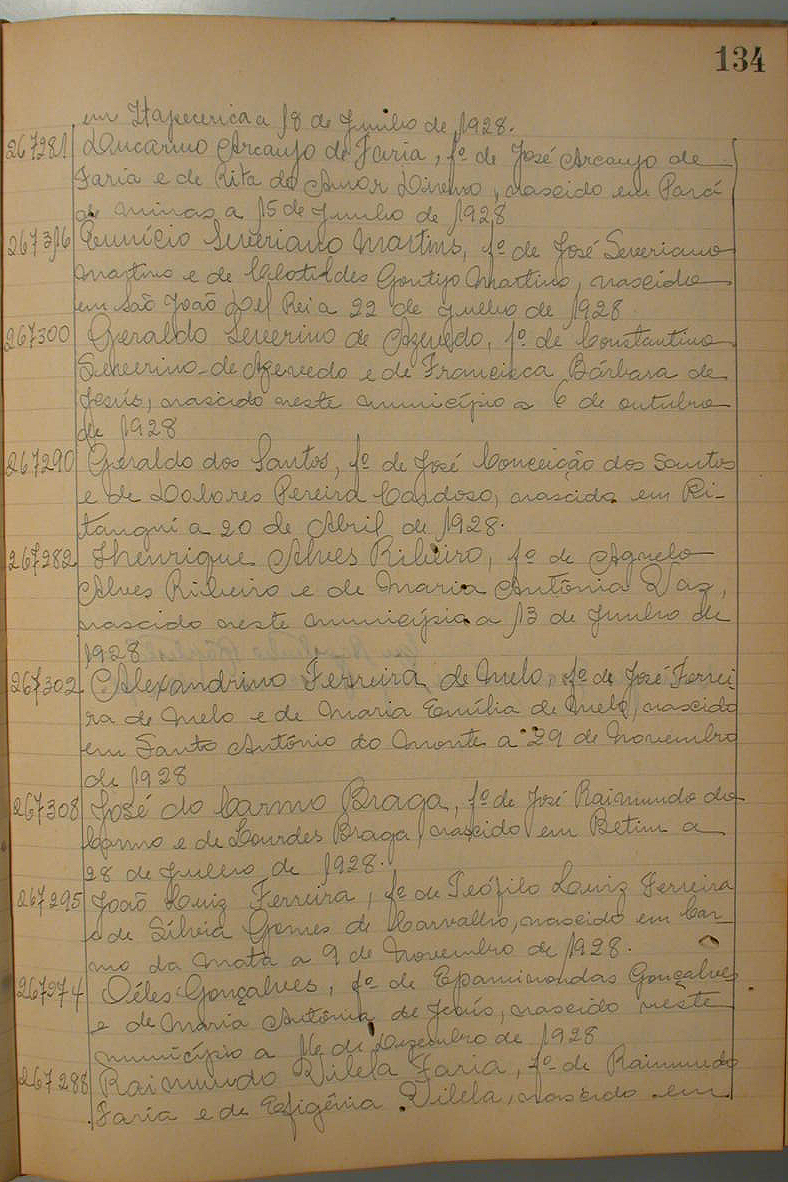 134
em Itapecerica a 18 de Junho de 1928.
267281 Lucarino Arcanjo de Faria, fº de José Arcanjo de
Faria e de Rita do Amor Divino, nascido em Pará
de minas a 15 de Junho de 1928
267316 Eunício Severiano Martins, fº de José Severiano
Martins e de Clotildes Gontijo Martins, nascido
em São João Del Rei a 22 de Julho de 1928
267300 Geraldo Severino de Azevedo, fº de Constantino
Severino de Azevedo e de Francisca Bárbara de
Jesús, nascido neste município a 6 de outubro
de 1928
267290 Geraldo dos Santos, fº de José Conceição dos Santos
e de Dolores Pereira Cardoso, nascido em Pi-
tanguí a 20 de Abril de 1928.
267282 Henrique Alves Ribeiro, fº de Agnelo
Alves Ribeiro e de Maria Antônia Vaz,
nascido neste município a 13 de Junho de
1928
267302 Alexandrino Ferreira de Melo, fº de José Ferrei
ra de Melo e de Maria Emília de Melo, nascido
em Santo Antônio do Monte a 29 de Novembro
de 1928
267308 José do Carmo Braga, fº de José Raimundo do
Carmo e de Lourdes Braga, nascido em Betim a
28 de Julho de 1928.
267295 João Luiz Ferreira, fº de Teófilo Luiz Ferreira
e de Sílvia Gomes de Carvalho, nascido em Car-
mo da Mata a 9 de Novembro de 1928.
267274 Déles Gonçalves, fº de Epaminondas Gonçalves
e de Maria Antônia de Jesús, nascido neste
município a 16 de Dezembro de 1928
267288 Raimundo Vilela Faria, fº de Raimundo
Faria e de Efigênia Vilela, nascido em